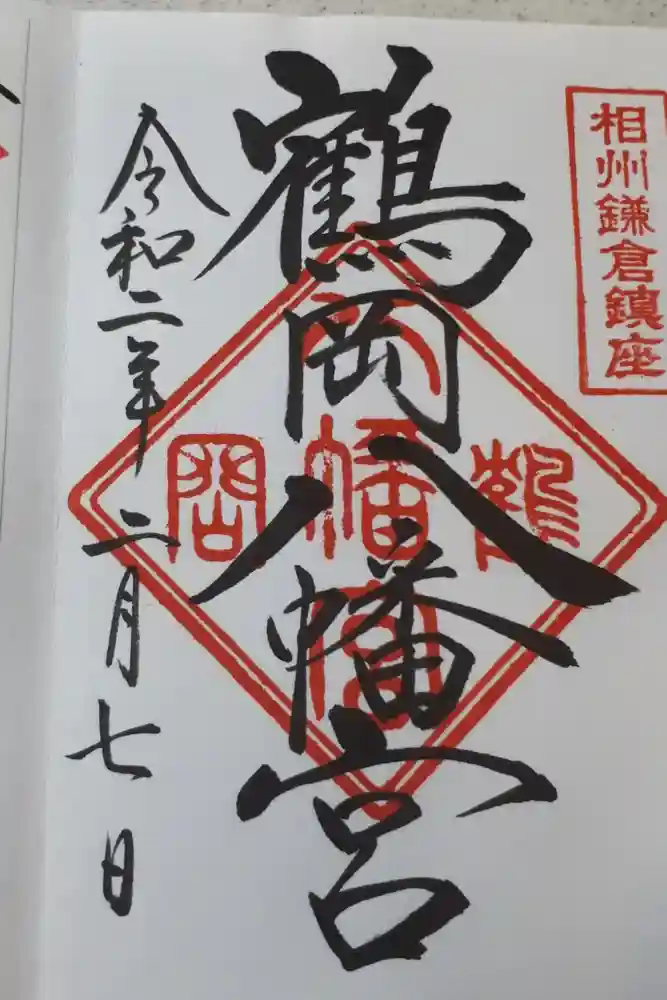 相州鎌倉鎮座
鶴岡八幡宮
令和二年二月七日
鶴
八
幡
宮
岡